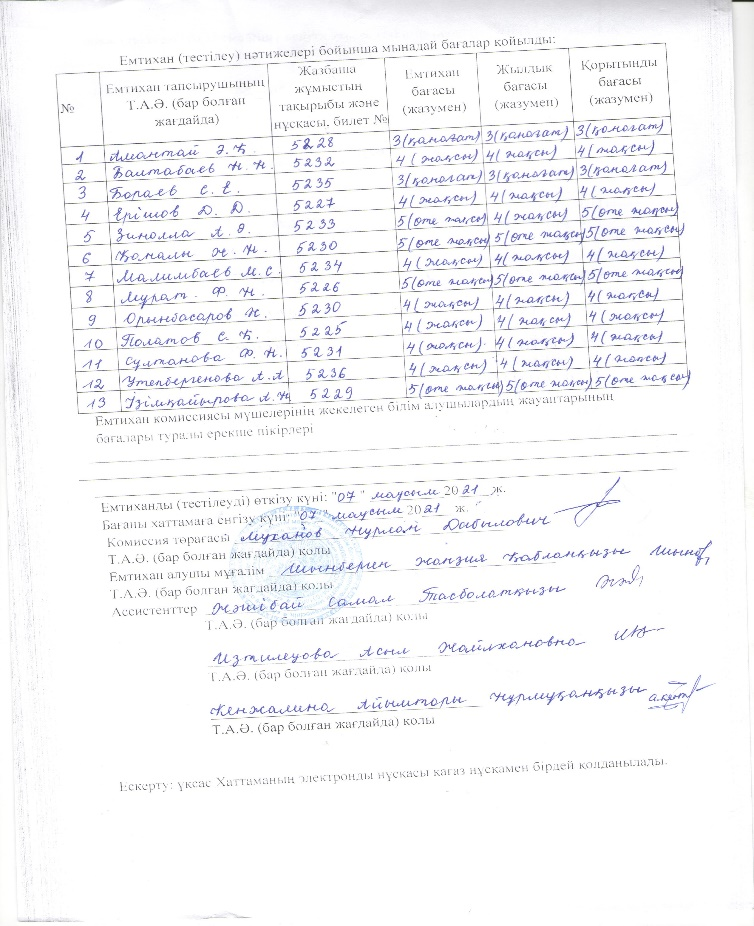 Емтихан (тестілеу) нәтижелері бойынша мынадай бағалар қойылды:
№ Емтихан тапсырушының Т.А.Ә. (бар болған жағдайда) Жазбаша жұмыстың тақырыбы және нұсқасы, билет № Емтихан бағасы (жазумен) Жылдық бағасы (жазумен) Қорытынды бағасы (жазумен)
1 Амантай Ә.Қ. 5228 3(қанағат) 3(қанағат) 3(қанағат)
2 Баитабаев Н.Н. 5232 4(жақсы) 4(жақсы) 4(жақсы)
3 Бораев С.Е. 5235 3(қанағат) 3(қанағат) 3(қанағат)
4 Ерішов Д.Д. 5227 4(жақсы) 4(жақсы) 4(жақсы)
5 Зинолла А.Ә. 5233 5(өте жақсы) 4(жақсы) 5(өте жақсы)
6 Қаналы Н.Н. 5230 5(өте жақсы) 5(өте жақсы) 5(өте жақсы)
7 Малимбаев М.С. 5234 4(жақсы) 4(жақсы) 4(жақсы)
8 Мұрат Ф.Н. 5226 5(өте жақсы) 5(өте жақсы) 5(өте жақсы)
9 Орынбасаров Н. 5230 4(жақсы) 4(жақсы) 4(жақсы)
10 Полатов С.Қ. 5225 4(жақсы) 4(жақсы) 4(жақсы)
11 Султанова Ф.Н. 5231 4(жақсы) 4(жақсы) 4(жақсы)
12 Утепбергенова А.А 5236 4(жақсы) 4(жақсы) 4(жақсы)
13 Ізімқайырова А.Н 5229 5(өте жақсы) 5(өте жақсы) 5(өте жақсы)
Емтихан комиссиясы мүшелерінің жекелеген білім алушылардың жауаптарының
бағалары туралы ерекше пікірлері
Емтиханды (тестілеуді) өткізу күні: "07" маусым 2021 ж.
Бағаны хаттамаға енгізу күні: "07" маусым 2021 ж.
Комиссия төрағасы Муханов Нұрлан Дабылович
Т.А.Ә. (бар болған жағдайда) қолы
Емтихан алушы мұғалім Шынберген Жапзия Қабланқызы
Т.А.Ә. (бар болған жағдайда) қолы
Ассистенттер Жәшібай Самал Тасболатқызы
Т.А.Ә. (бар болған жағдайда) қолы
Изтилеуова Асыл Жайлхановна
Т.А.Ә. (бар болған жағдайда) қолы
Кенжалина Айымторы Нұрмұқанқызы
Т.А.Ә. (бар болған жағдайда) қолы
Ескерту: ұқсас Хаттаманың электронды нұсқасы қағаз нұсқамен бірдей қолданылады.